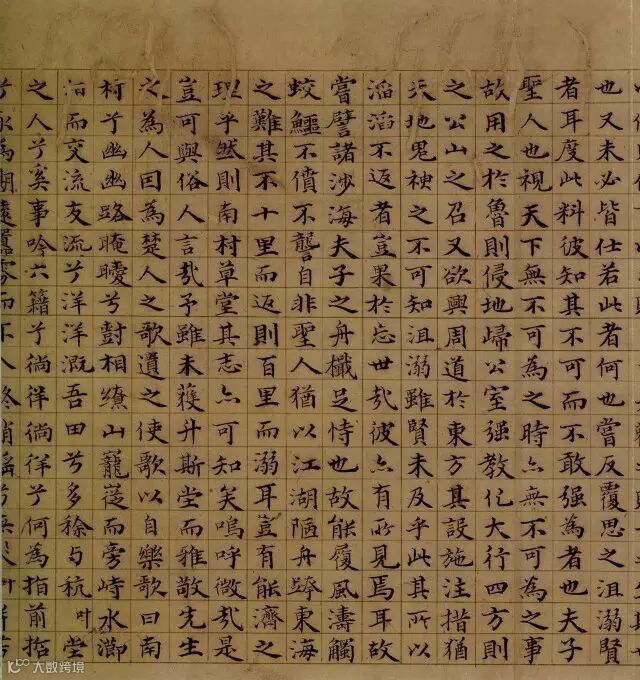 也又未必皆仕若此者何也嘗反覆思之沮溺賢
者耳度此料彼知其不可而不敢強為者也夫子
聖人也視天下無不可為之時亦無不可為之事
故用之於魯則侵地歸公室强教化大行四方則
之公山之召又欲興周道於東方其設施注措猶
天地鬼神之不可知沮溺雖賢未及乎此其所以
滔滔不返者豈果於忘世哉彼亦有所見焉耳故
嘗譬諸沙海夫子之舟檝足恃也故能履風濤觸
蛟鱷不僨不讋自非聖人猶以江湖陋舟躋東海
之難其不十里而返則百里而溺耳豈有能濟之
理乎然則南村草堂其志亦可知矣嗚呼微哉是
豈可與俗人言哉予雖未獲升斯堂而雅敬先生
之為人因為楚人之歌遺之使歌以自樂歌曰南
村兮幽幽路晻曖兮對相繚山巃嵸而旁峙水瀰
而交流友流兮洋洋溉吾田兮多稌与秔叶堂
之人兮奚事吟六籍兮徜徉徜徉兮何為指前
大数跨境